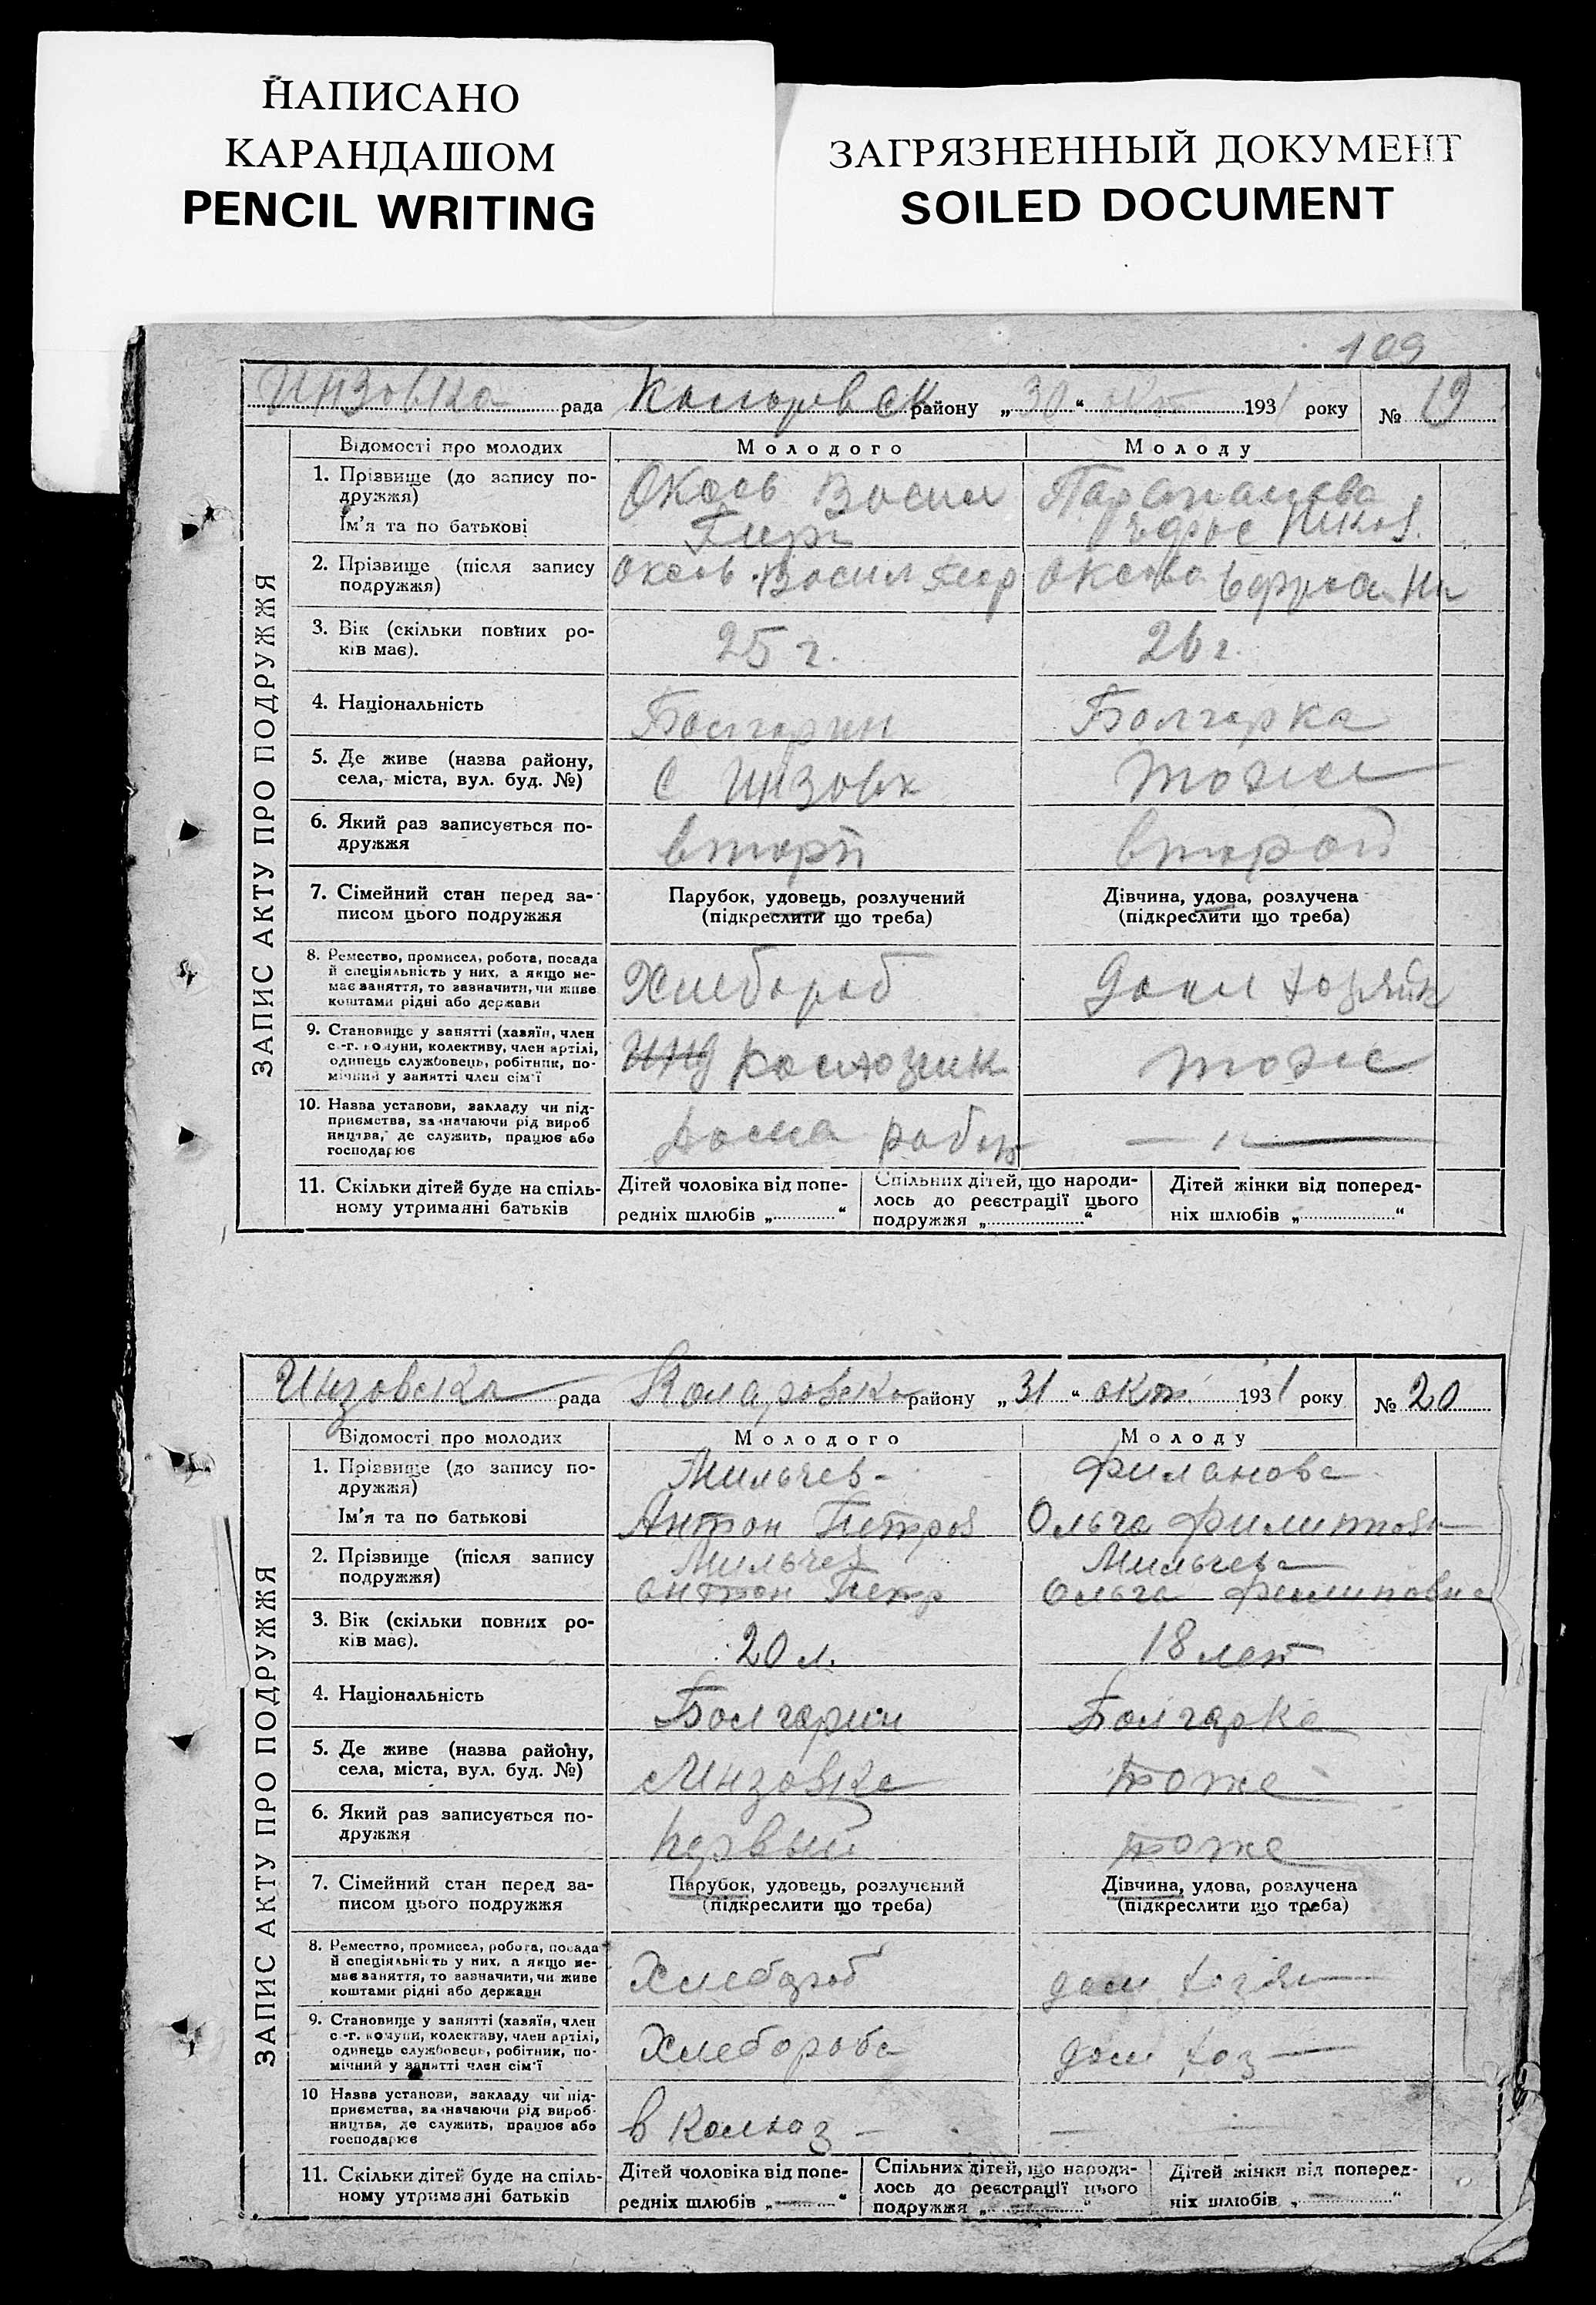 НАПИСАНО
КАРАНДАШОМ
PENCIL WRITING
ЗАГРЯЗНЕННЫЙ ДОКУМЕНТ
SOILED DOCUMENT
109
ЗАПИС АКТУ ПРО ПОДРУЖЖЯ
Инзовка рада Коларовск району „30“ окт 1931 року № 19
Відомості про молодих Молодого Молоду
1. Прізвище (до запису по-
дружжя)
Ім'я та по батькові
Васил
Никол.
2. Прізвище (після запису
подружжя)
Васил
3. Вік (скільки повних ро-
ків має).
25 г. 26 г.
4. Національність Болгарин Болгарка
5. Де живе (назва району,
села, міста, вул. буд. №)
С Инзовк тоже
6. Який раз записується по-
дружжя
второй
7. Сімейний стан перед за-
писом цього подружжя
Парубок, удовець, розлучений
(підкреслити що треба)
Дівчина, удова, розлучена
(підкреслити що треба)
8. Ремество, промисел, робота, посада
й спеціяльність у них, а якщо не-
має заняття, то зазначити, чи живе
коштами рідні або держави
Хлебороб дом хозяйк
9. Становище у занятті (хазяїн, член
с.-г. комуни, колективу, член артілі,
одинець службовець, робітник, по-
мічний у занятті член сім'ї
инд колхозник тоже
10. Назва установи, закладу чи під-
приємства, зазначаючи рід вироб
ництва, де служить, працює або
господарює
дома работ — " —
11. Скільки дітей буде на спіль-
ному утриманні батьків
Дітей чоловіка від попе-
редніх шлюбів „............“
Спільних дітей, що народи-
лось до реєстрації цього
подружжя „............“
Дітей жінки від поперед-
ніх шлюбів „............“
ЗАПИС АКТУ ПРО ПОДРУЖЖЯ
Инзовска рада Коларовска району „31“ окт. 1931 року № 20
Відомості про молодих Молодого Молоду
1. Прізвище (до запису по-
дружжя)
Ім'я та по батькові
Мильчев- Филанова
Антон Петров Ольга Филиппов
2. Прізвище (після запису
подружжя)
Мильчев Мильчева
Антон Петр Ольга Филиповна
3. Вік (скільки повних ро-
ків має).
20 л. 18 лет
4. Національність Болгарин Болгарка
5. Де живе (назва району,
села, міста, вул. буд. №)
с Инзовка тоже
6. Який раз записується по-
дружжя
первый тоже
7. Сімейний стан перед за-
писом цього подружжя
Парубок, удовець, розлучений
(підкреслити що треба)
Дівчина, удова, розлучена
(підкреслити що треба)
8. Ремество, промисел, робота, посада
й спеціяльність у них, а якщо не-
має заняття, то зазначити, чи живе
коштами рідні або держави
Хлебороб дом хозяй
9. Становище у занятті (хазяїн, член
с.-г. комуни, колективу, член артілі,
одинець службовець, робітник, по-
мічний у занятті член сім'ї
Хлебороба дом хоз
10 Назва установи, закладу чи під-
приємства, зазначаючи рід вироб-
ництва, де служить, працює або
господарює
в колхоз — —
11. Скільки дітей буде на спіль-
ному утриманні батьків
Дітей чоловіка від попе-
редніх шлюбів „—“
Спільних дітей, що народи-
лось до реєстрації цього
подружжя „—“
Дітей жінки від поперед-
ніх шлюбів „—“